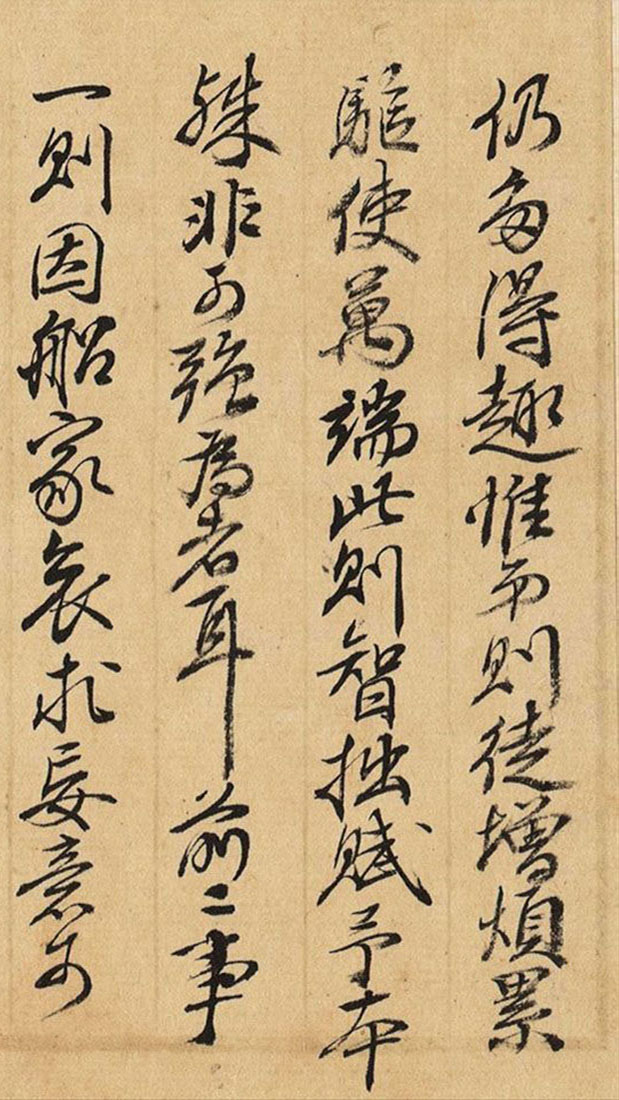 仍多得趣惟弟則徒增煩累
驅使萬端此則智拙賦予本
殊非可强為者耳前二事
一則因船家哀求妄意可